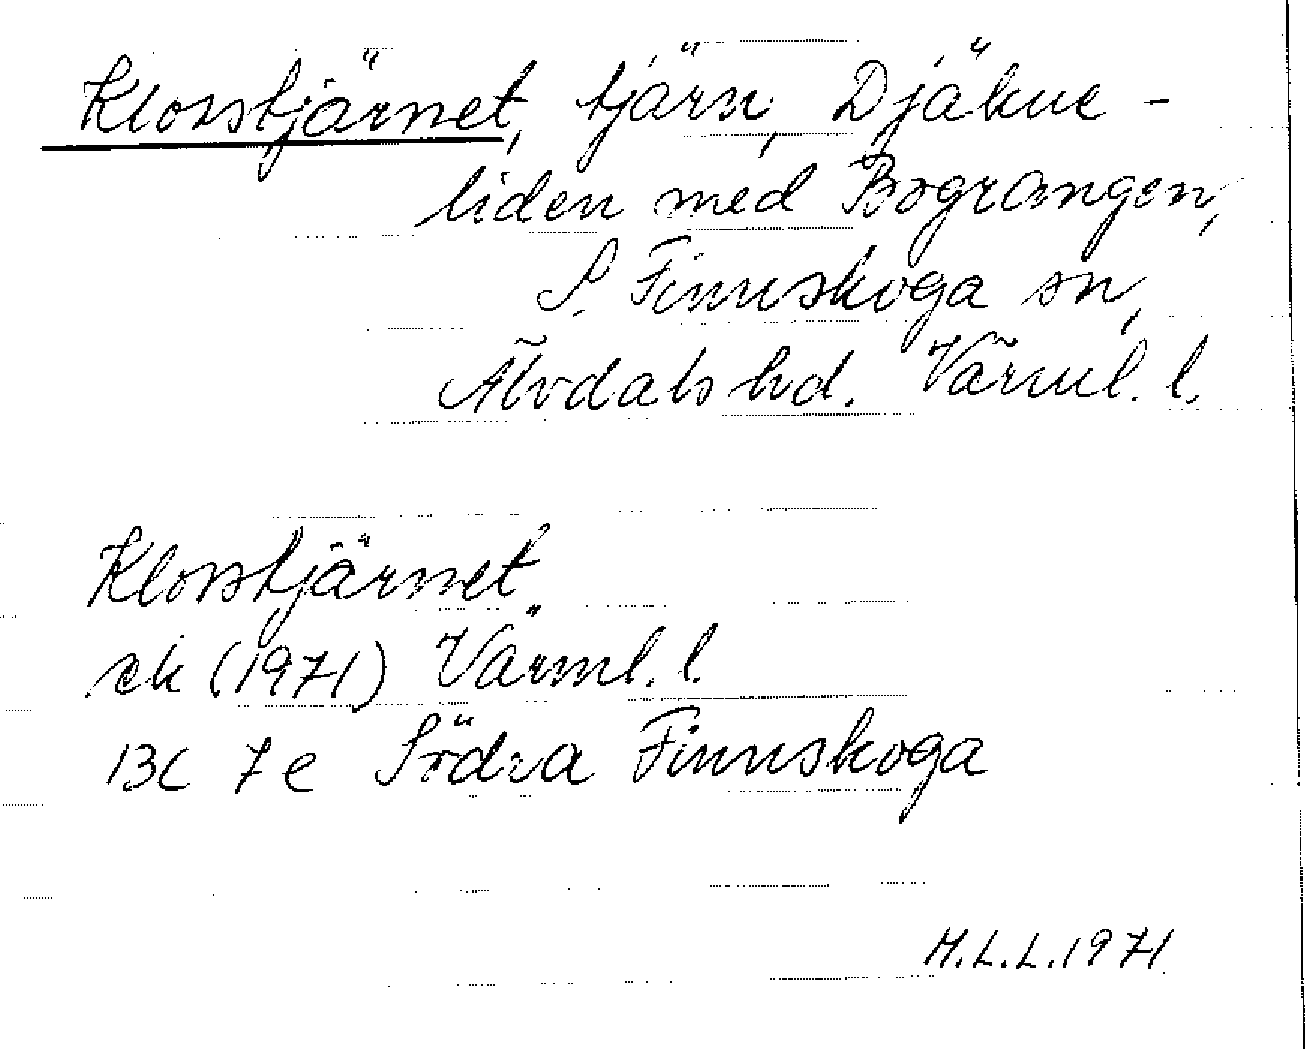 Klosstjärnet, tjärn, Djäkne-
liden med Bograngen,
S. Finnskoga sn,
Älvdals hd. Värml. l.
Klosstjärnet
ek (1971) Värml. l.
13C 7e Södra Finnskoga
H.L.L. 1971